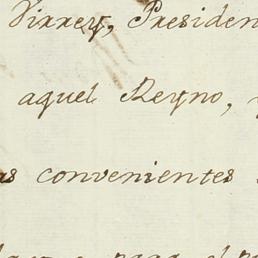 Virrey, Presiden
aquel Reyno,
as convenientes